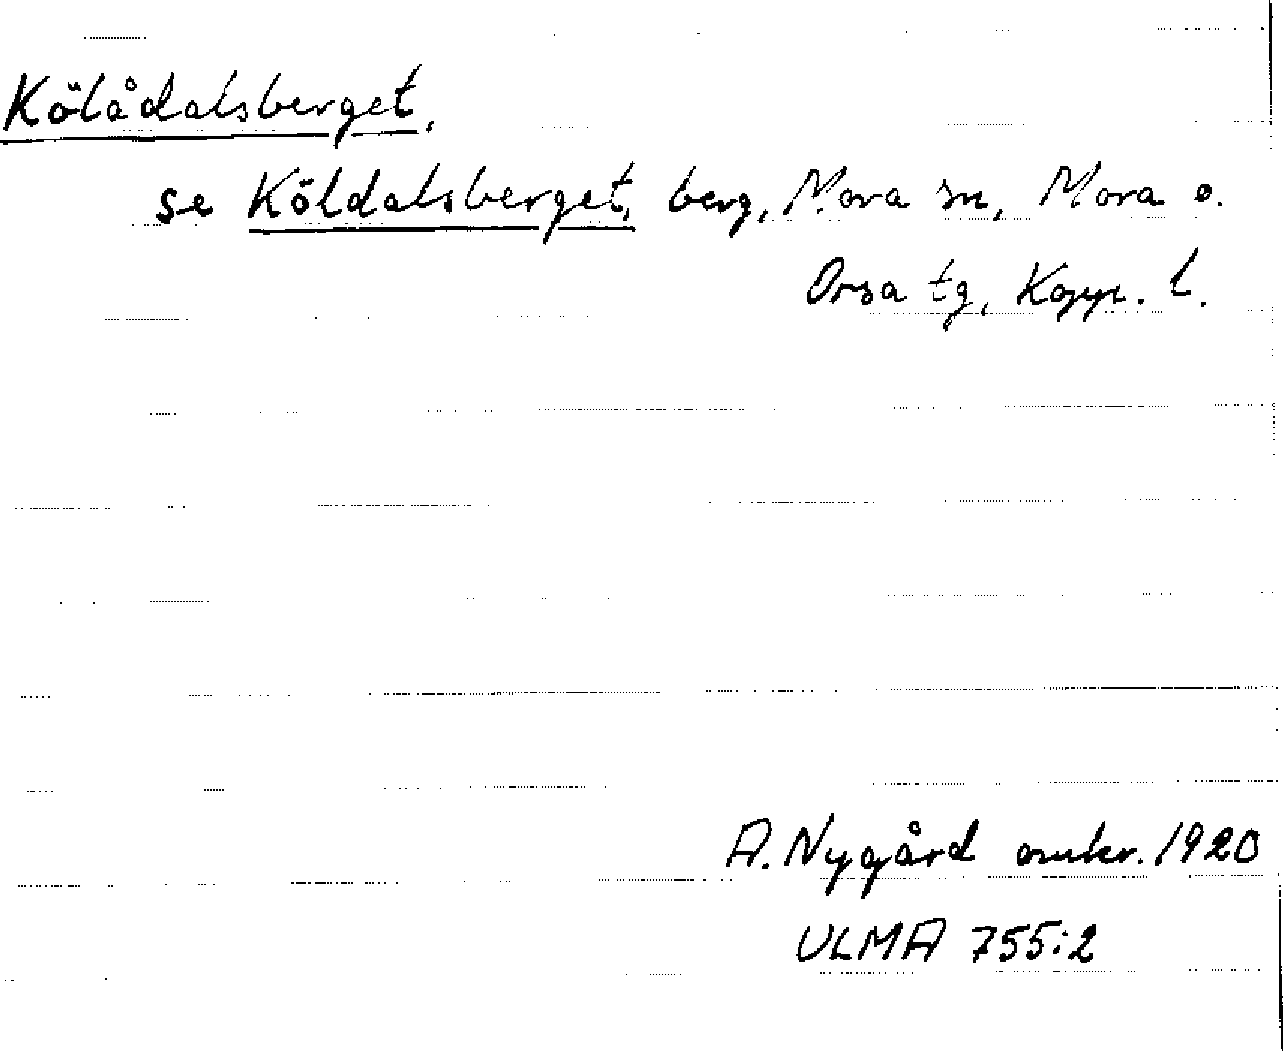 Kölådalsberget,
se Köldalsberget, berg, Mora sn, Mora o.
Orsa tg, Kopp. l.
A. Nygård omkr. 1920
ULMA 755:2